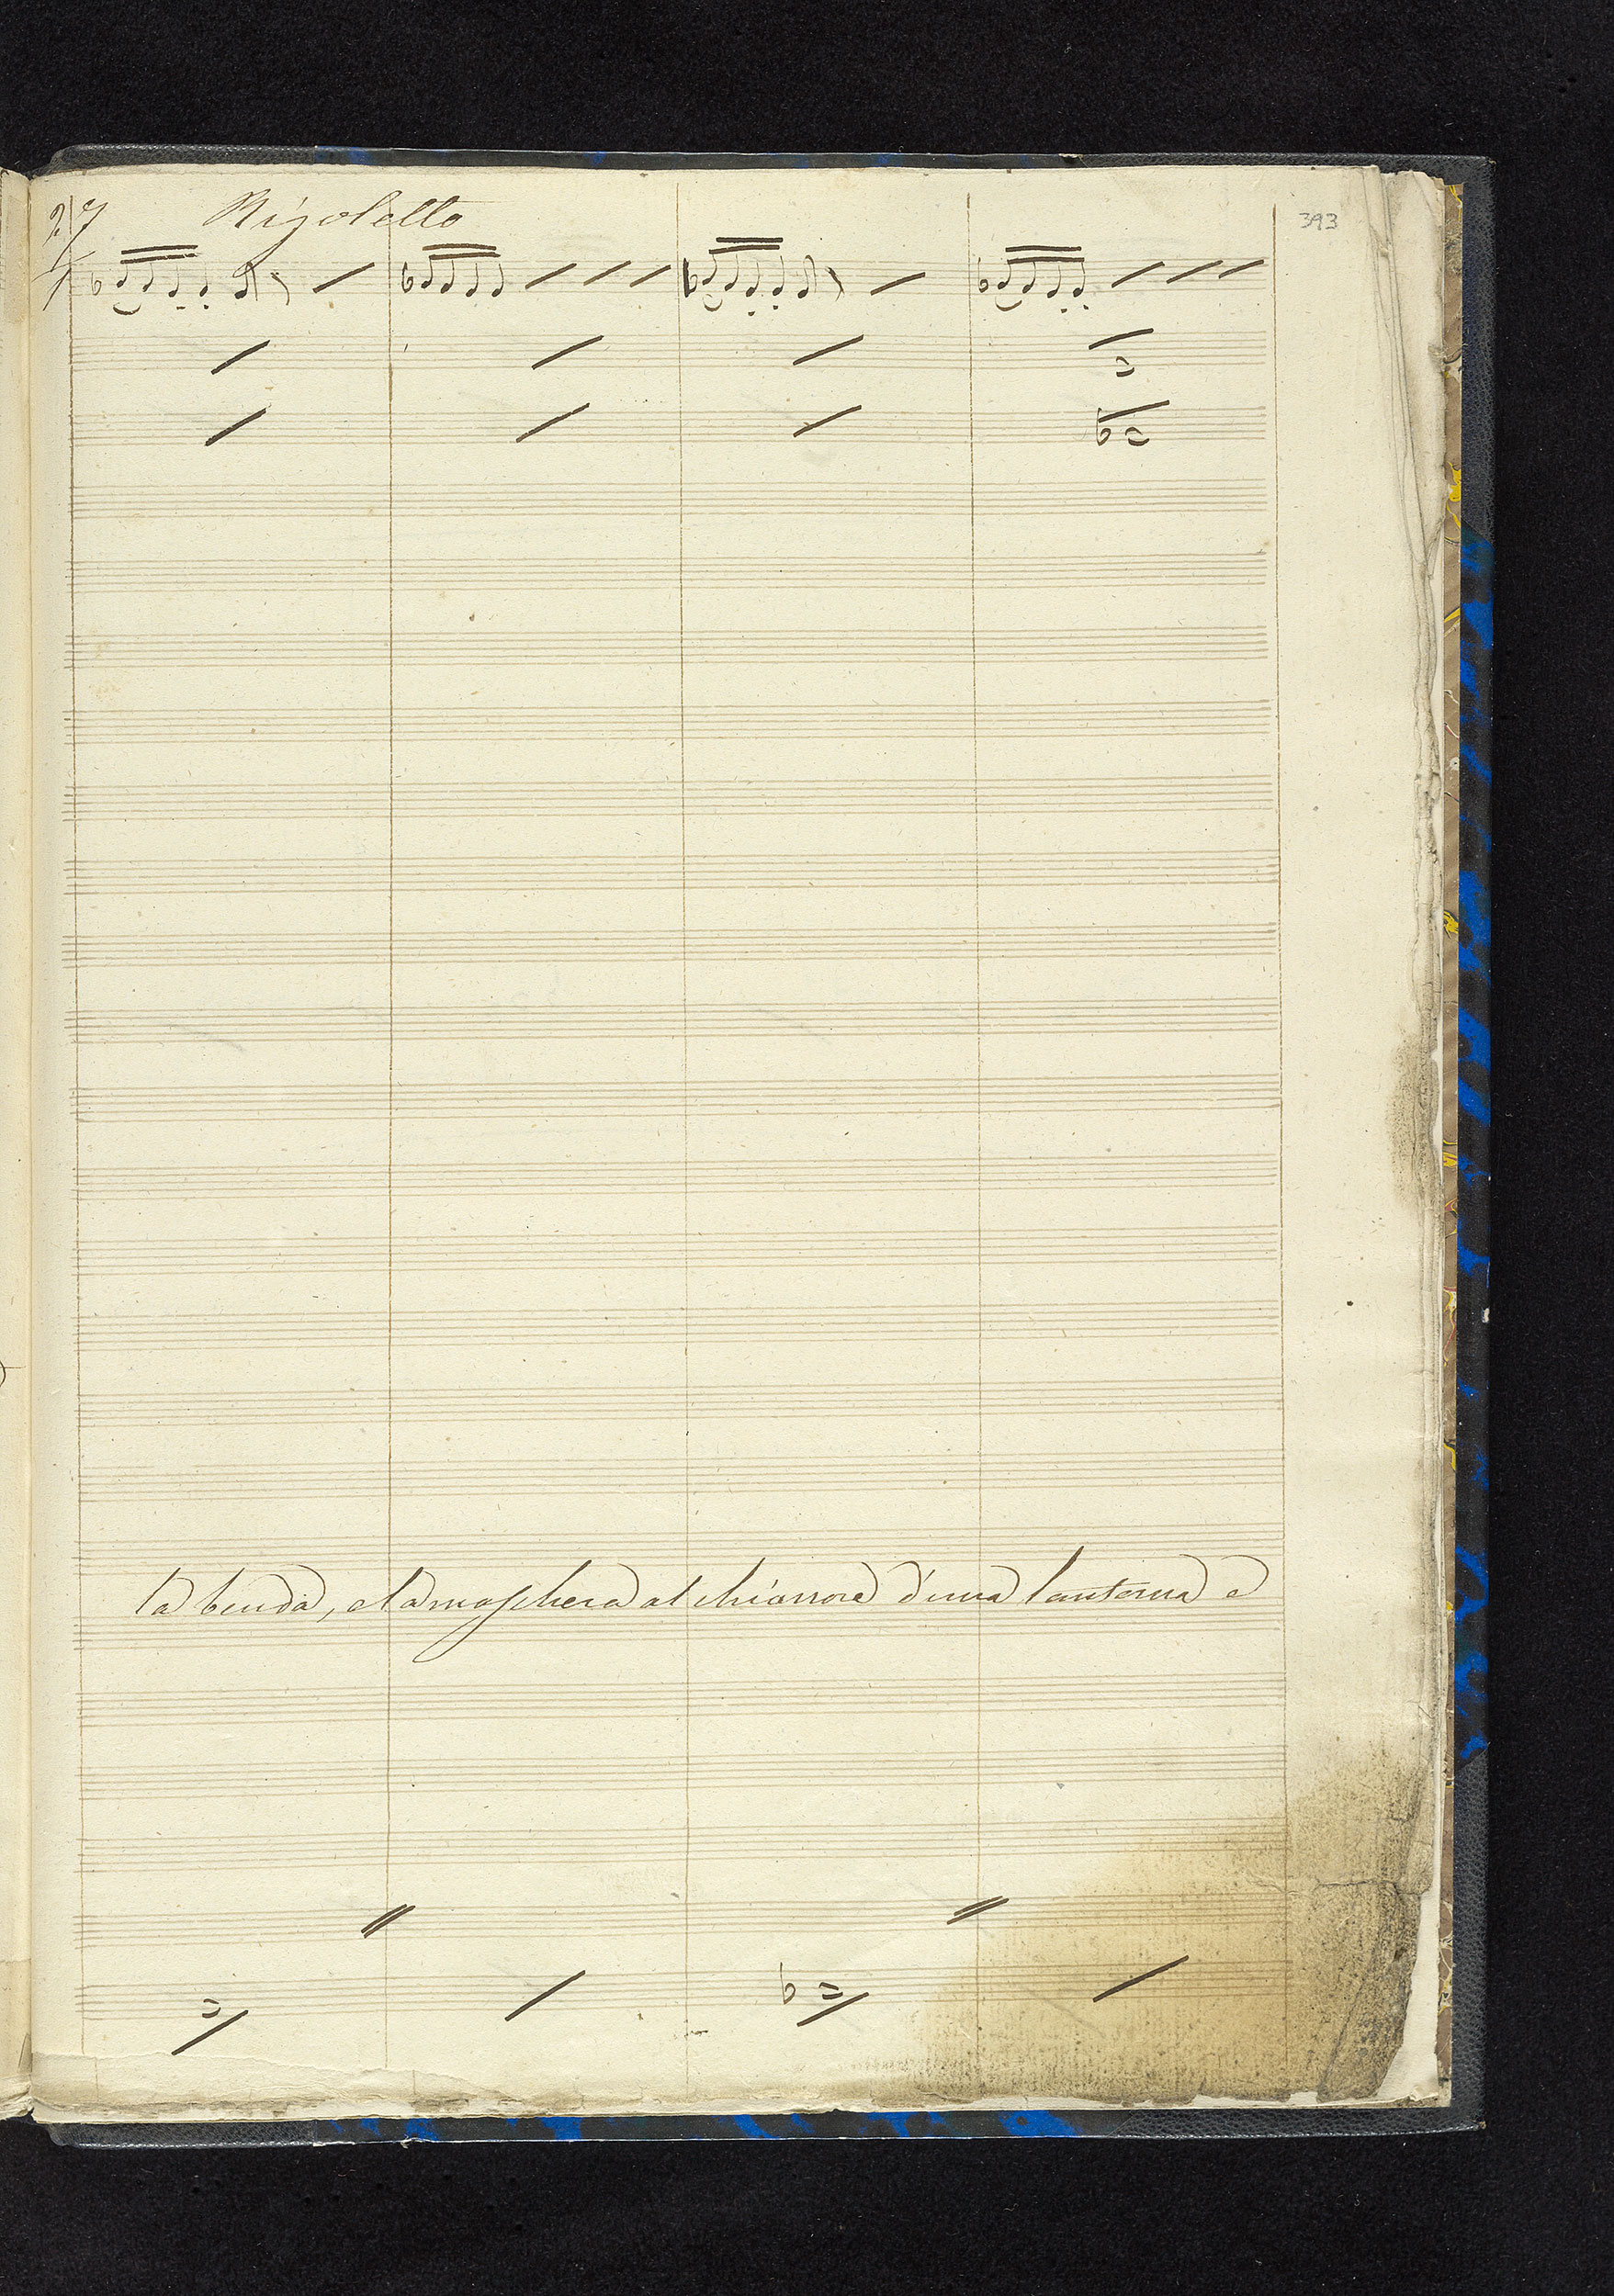 27 Rigoletto
393
la benda, e la maschera al chiarrore d'una lanterna e